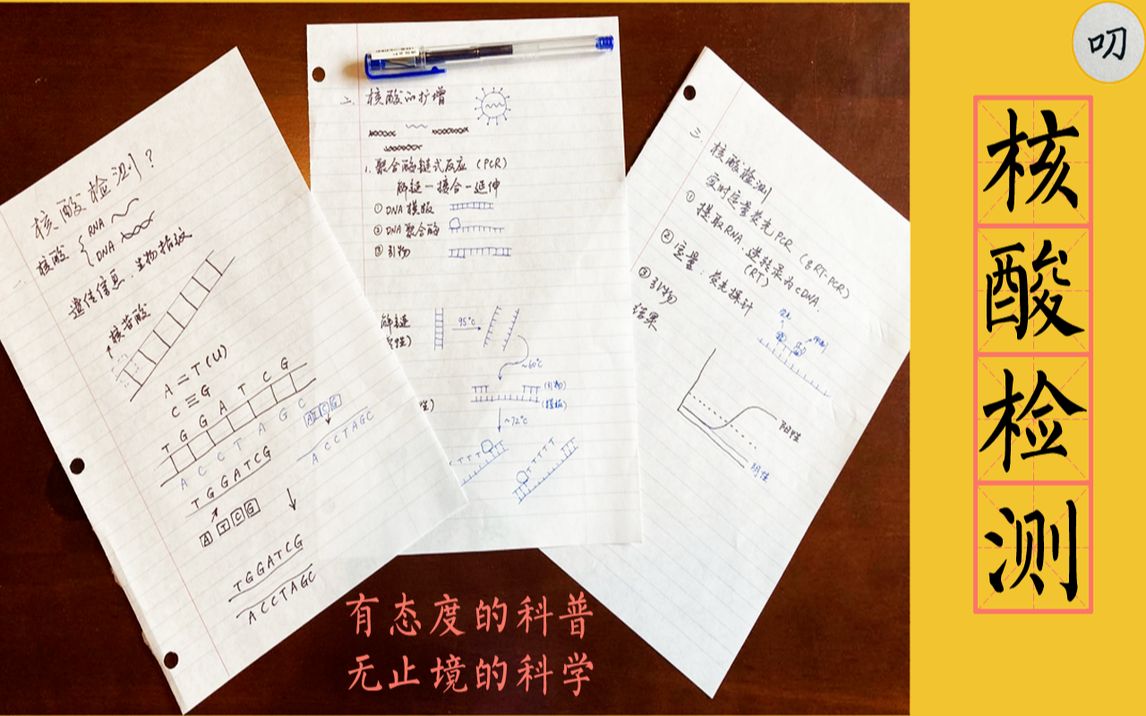 核酸检测?
一. 核酸 { RNA
DNA
遗传信息、生物指纹
核苷酸
A=T(U)
C≡G
T G G A T C G
A C C T A G C
T G G A T C G
A T C G
A C C T A G C
T G G A T C G
A C C T A G C
二. 核酸的扩增
1. 聚合酶链式反应 (PCR)
解链-接合-延伸
① DNA 模板
② DNA 聚合酶
③ 引物
解链
95℃
~60℃
(引物)
(模板)
~72℃
三. 核酸检测
实时定量荧光PCR (qRT-PCR)
① 提取RNA、逆转录为cDNA.
(RT)
② 定量、荧光探针
③ 引物
结果
阳性
阴性
有态度的科普
无止境的科学
叨
核
酸
检
测